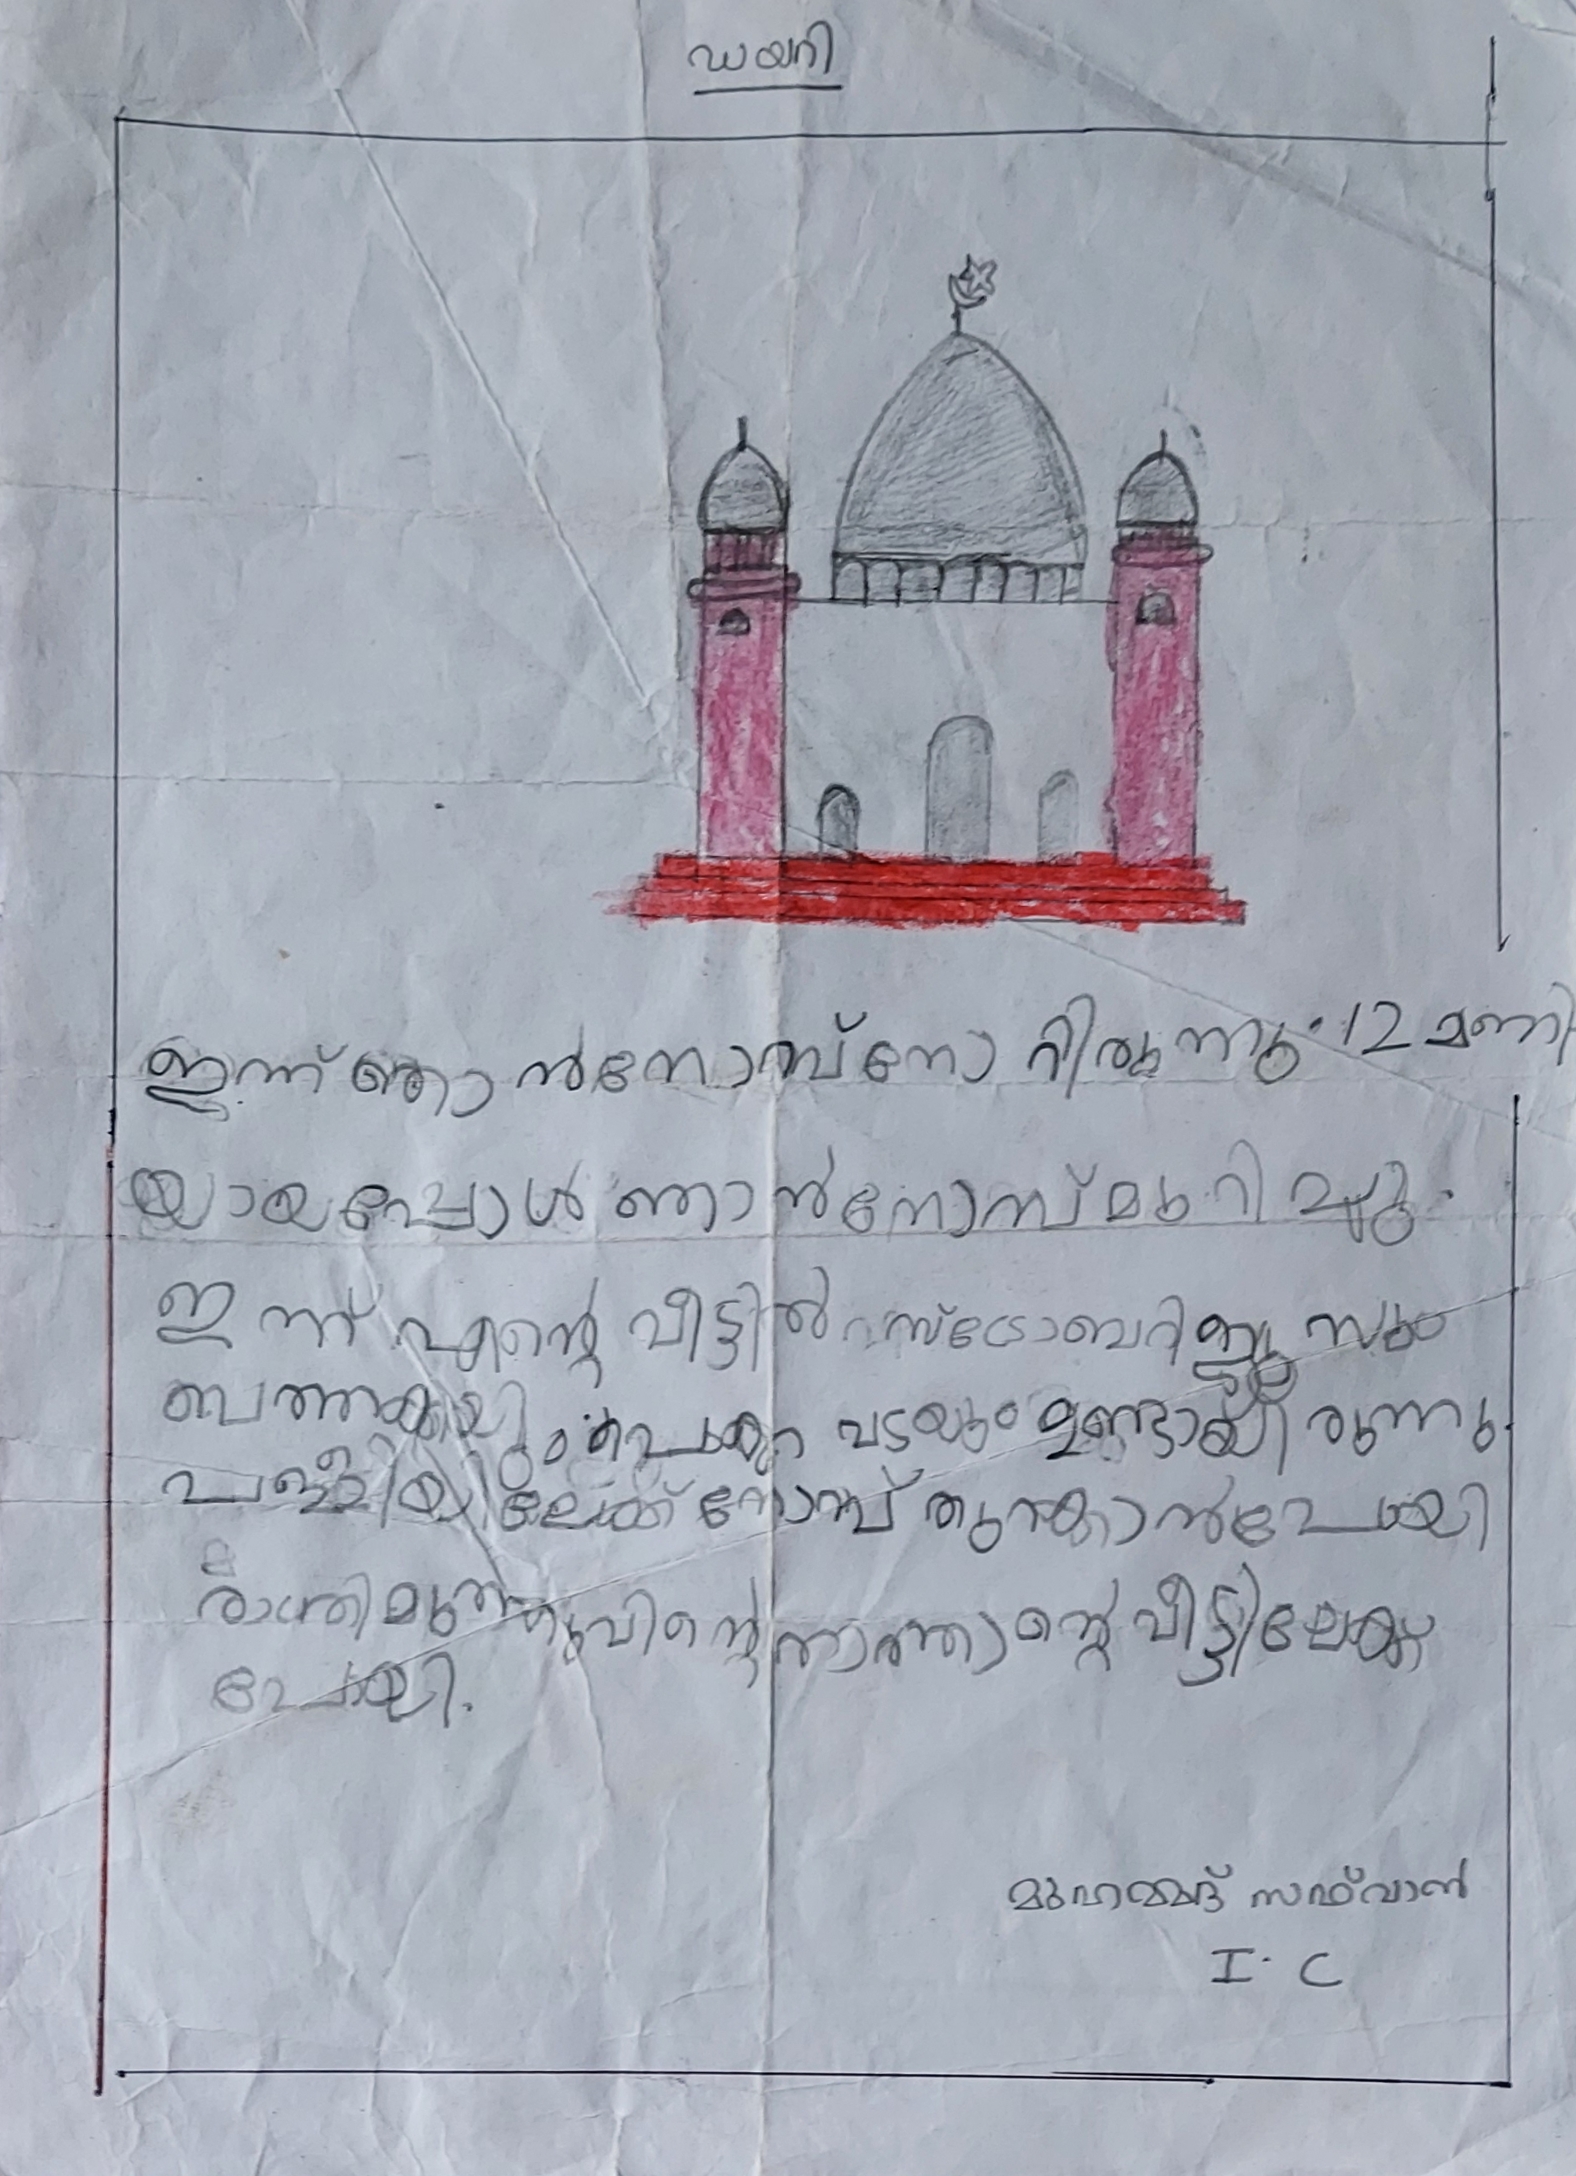 ഡയറി
ഇന്ന് ഞാൻ നോമ്പ് നോറ്റിരുന്നു. 12 മണി
യായപ്പോൾ ഞാൻ നോമ്പ് മുറിച്ചു.
ഇന്ന് എന്റെ വീട്ടിൽ സ്ട്രോബറി ജ്യൂസും
ബത്തക്കയും പൊരി വടയും ഉണ്ടായിരുന്നു.
പള്ളിയിലേക്ക് നോമ്പ് തുറക്കാൻ പോയി
രാത്രി മുത്തുവിന്റെ താത്താന്റെ വീട്ടിലേക്ക്
പോയി.
മുഹമ്മദ് സഫ്‌വാൻ
I. C